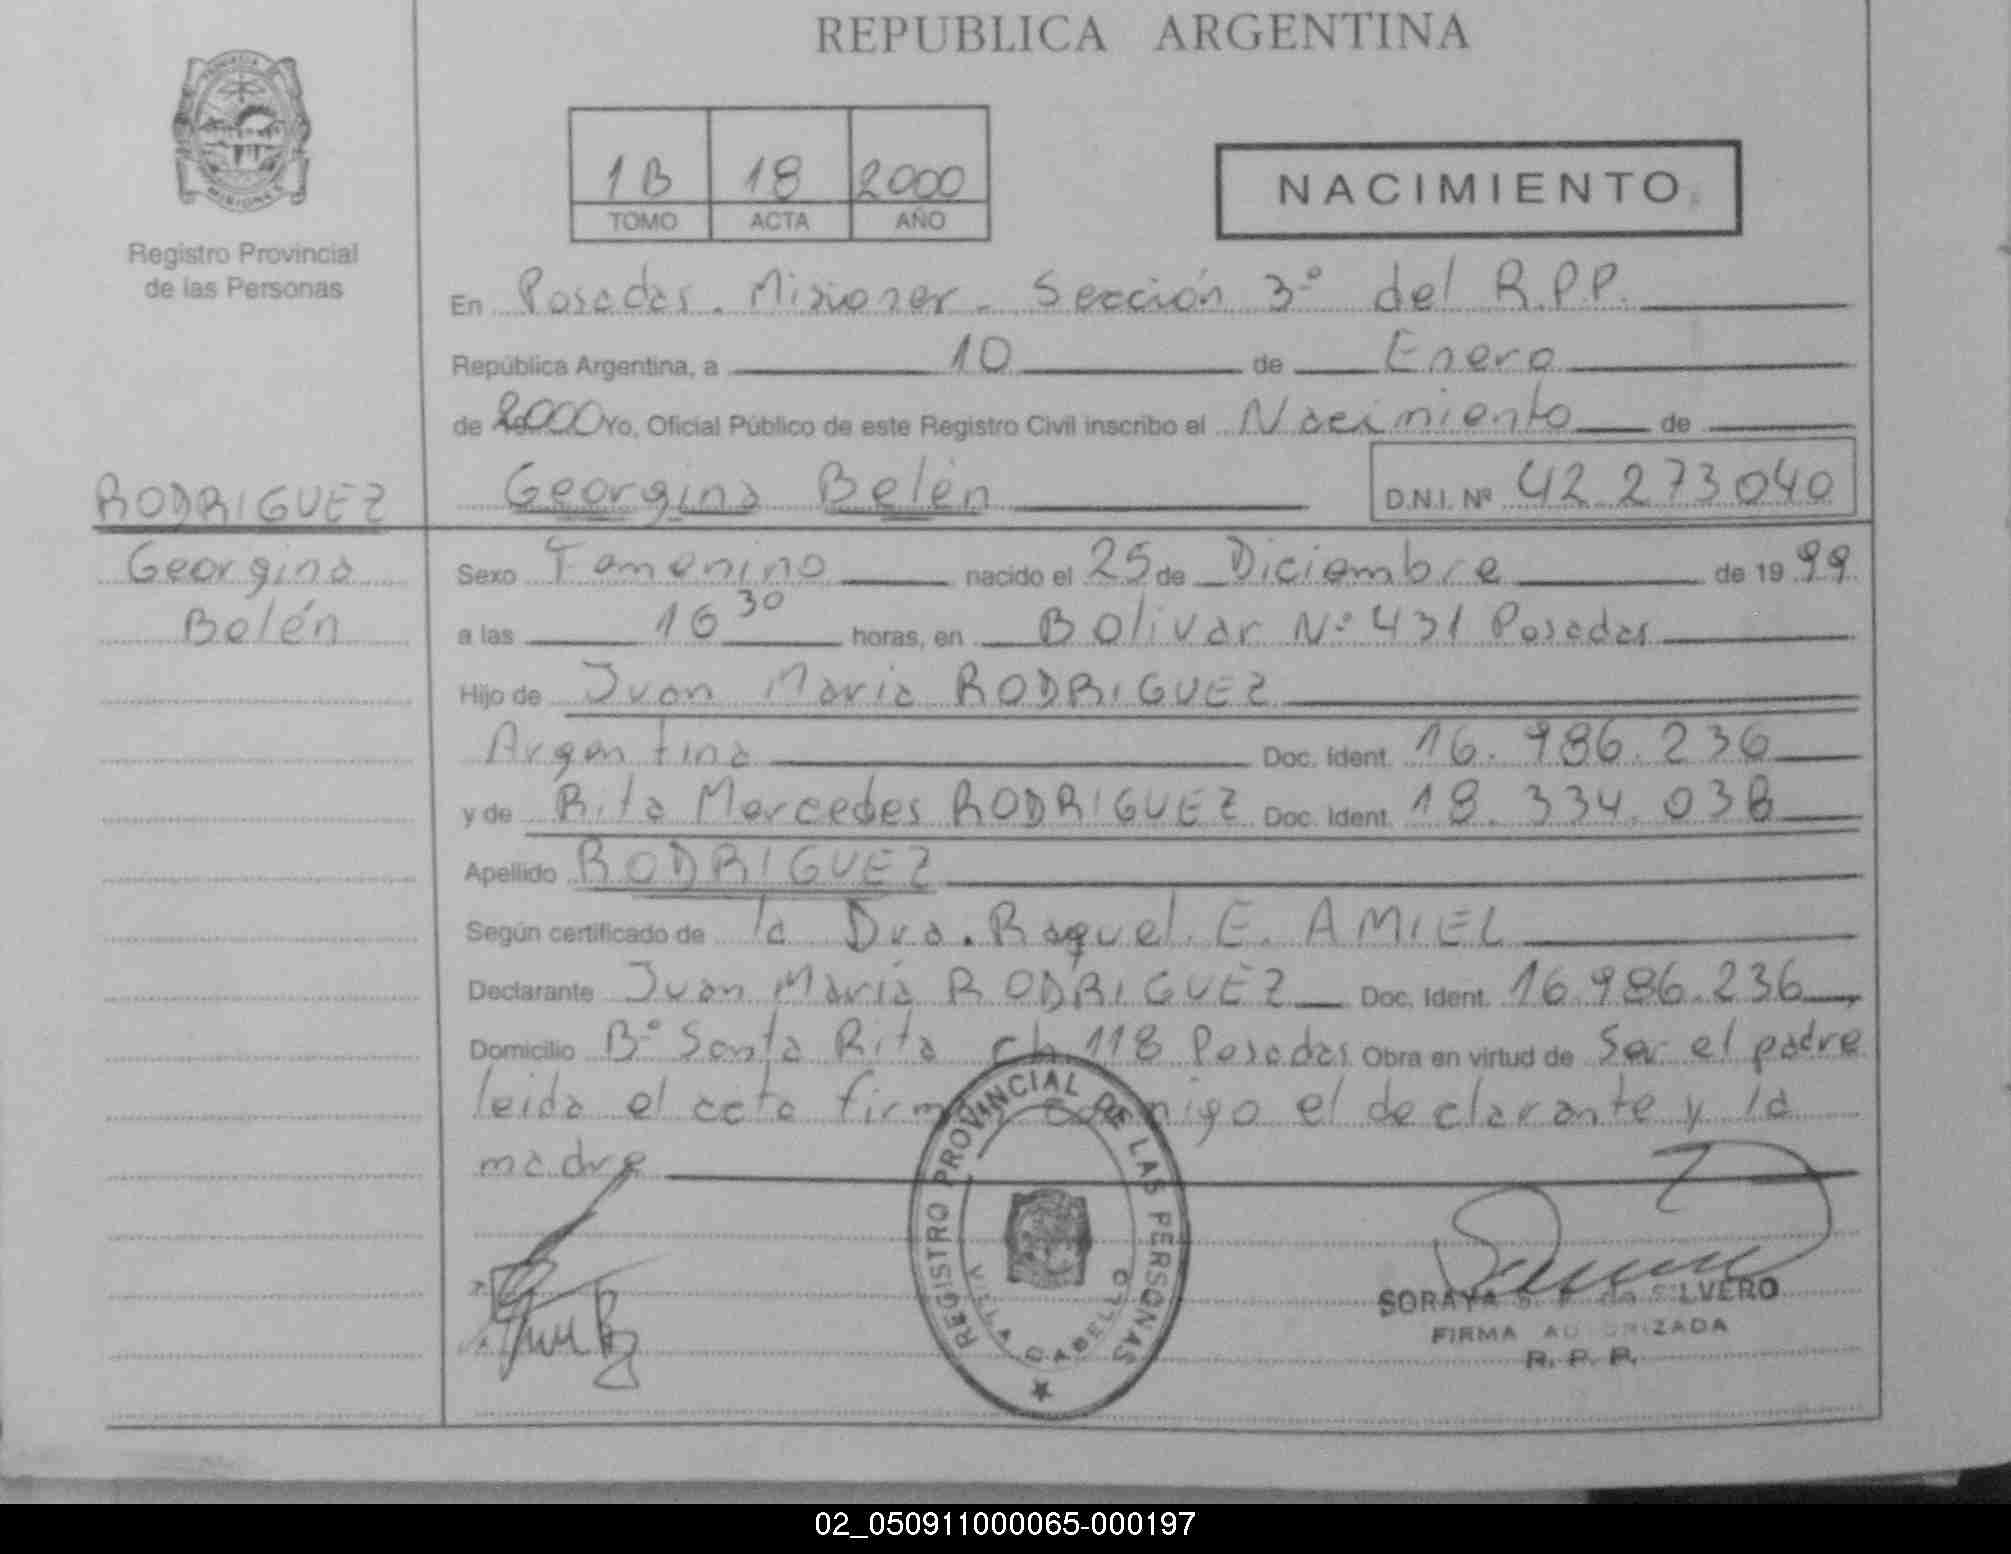 REPUBLICA ARGENTINA
PROVINCIA DE MISIONES
Registro Provincial
de las Personas
1B 18 2000
TOMO ACTA AÑO
NACIMIENTO
En Posadas. Misiones - Sección 3º del R.P.P.
República Argentina, a 10 de Enero
de 2000 Yo, Oficial Público de este Registro Civil inscribo el Nacimiento de
Georgina Belén D.N.I. Nº 42.273040
RODRIGUEZ
Georgina
Belén
Sexo Femenino nacido el 25 de Diciembre de 19 99
a las 16 30 horas, en Bolivar Nº 431 Posadas
Hijo de Juan Maria RODRIGUEZ
Argentina Doc. Ident. 16.986.236
y de Rita Mercedes RODRIGUEZ Doc. Ident. 18.334.038
Apellido RODRIGUEZ
Según certificado de la Dra. Raquel E. AMIEL
Declarante Juan María RODRIGUEZ Doc. Ident. 16.986.236
Domicilio Bº Santa Rita ch 118 Posadas Obra en virtud de Ser el padre
leida el acta firma conmigo el declarante y la
madre
REGISTRO PROVINCIAL DE LAS PERSONAS
VILLA CABELLO
SORAYA SILVERO
FIRMA AUTORIZADA
R. P. P.
02_050911000065-000197